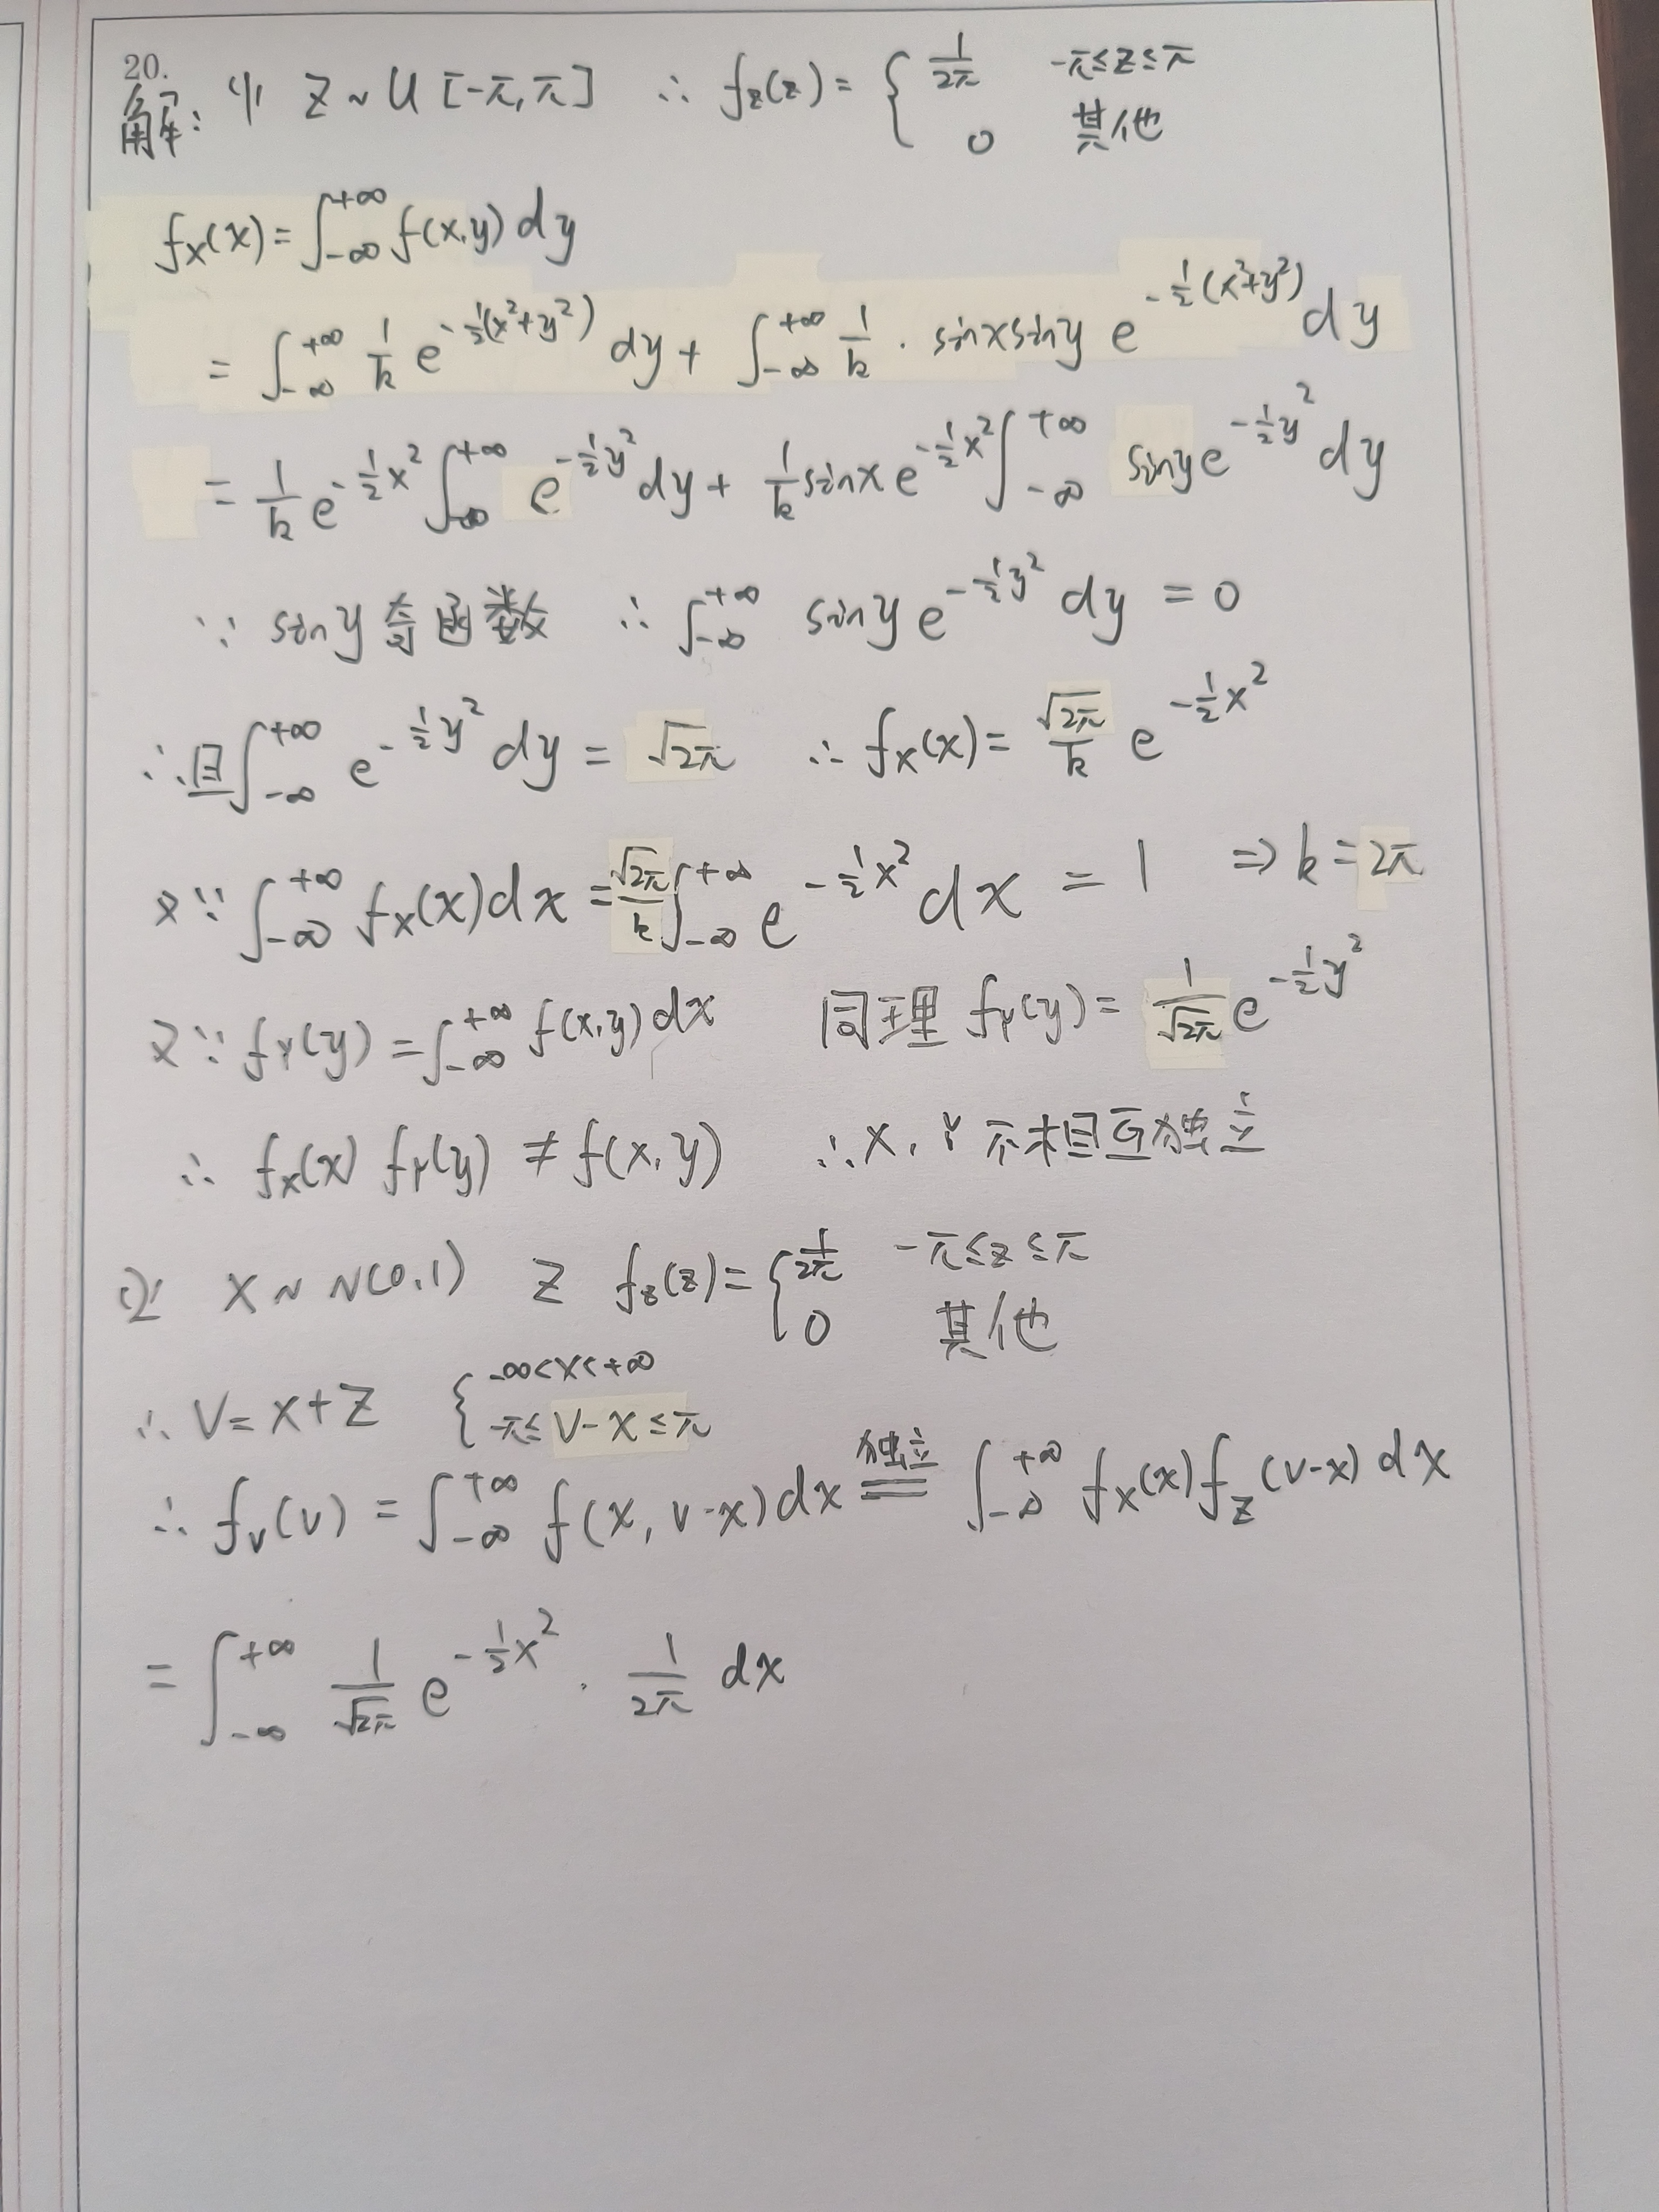 20.
解: (1) Z ~ U [-π, π] ∴ f_Z(z) = { 1/2π -π≤z≤π
0 其他
f_X(x) = ∫_{-∞}^{+∞} f(x,y) dy
= ∫_{-∞}^{+∞} 1/k e^{-1/2(x²+y²)} dy + ∫_{-∞}^{+∞} 1/k · sinxsiny e^{-1/2(x²+y²)} dy
= 1/k e^{-1/2 x²} ∫_{-∞}^{+∞} e^{-1/2 y²} dy + 1/k sinx e^{-1/2 x²} ∫_{-∞}^{+∞} siny e^{-1/2 y²} dy
∵ siny 奇函数 ∴ ∫_{-∞}^{+∞} siny e^{-1/2 y²} dy = 0
∴且 ∫_{-∞}^{+∞} e^{-1/2 y²} dy = √2π ∴ f_X(x) = √2π/k e^{-1/2 x²}
又∵ ∫_{-∞}^{+∞} f_X(x) dx = √2π/k ∫_{-∞}^{+∞} e^{-1/2 x²} dx = 1 ⇒ k = 2π
又∵ f_Y(y) = ∫_{-∞}^{+∞} f(x,y) dx 同理 f_Y(y) = 1/√2π e^{-1/2 y²}
∴ f_X(x) f_Y(y) ≠ f(x,y) ∴ X, Y 不相互独立
(2) X ~ N(0,1) Z f_Z(z) = { 1/2π -π≤z≤π
0 其他
∴ V = X + Z { -∞<x<+∞
-π≤ V-x ≤π
∴ f_V(v) = ∫_{-∞}^{+∞} f(x, v-x) dx 独立 = ∫_{-∞}^{+∞} f_X(x) f_Z(v-x) dx
= ∫_{-∞}^{+∞} 1/√2π e^{-1/2 x²} · 1/2π dx